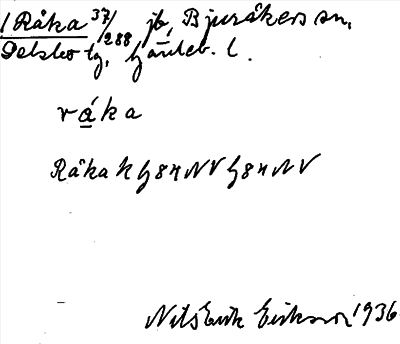 1 Råka 37/288 jb, Bjuråkers sn,
Delsbo tg, Gävleb. l.
råka
Råka K G84NV G84NV
Nils Erik Eriksson 1936